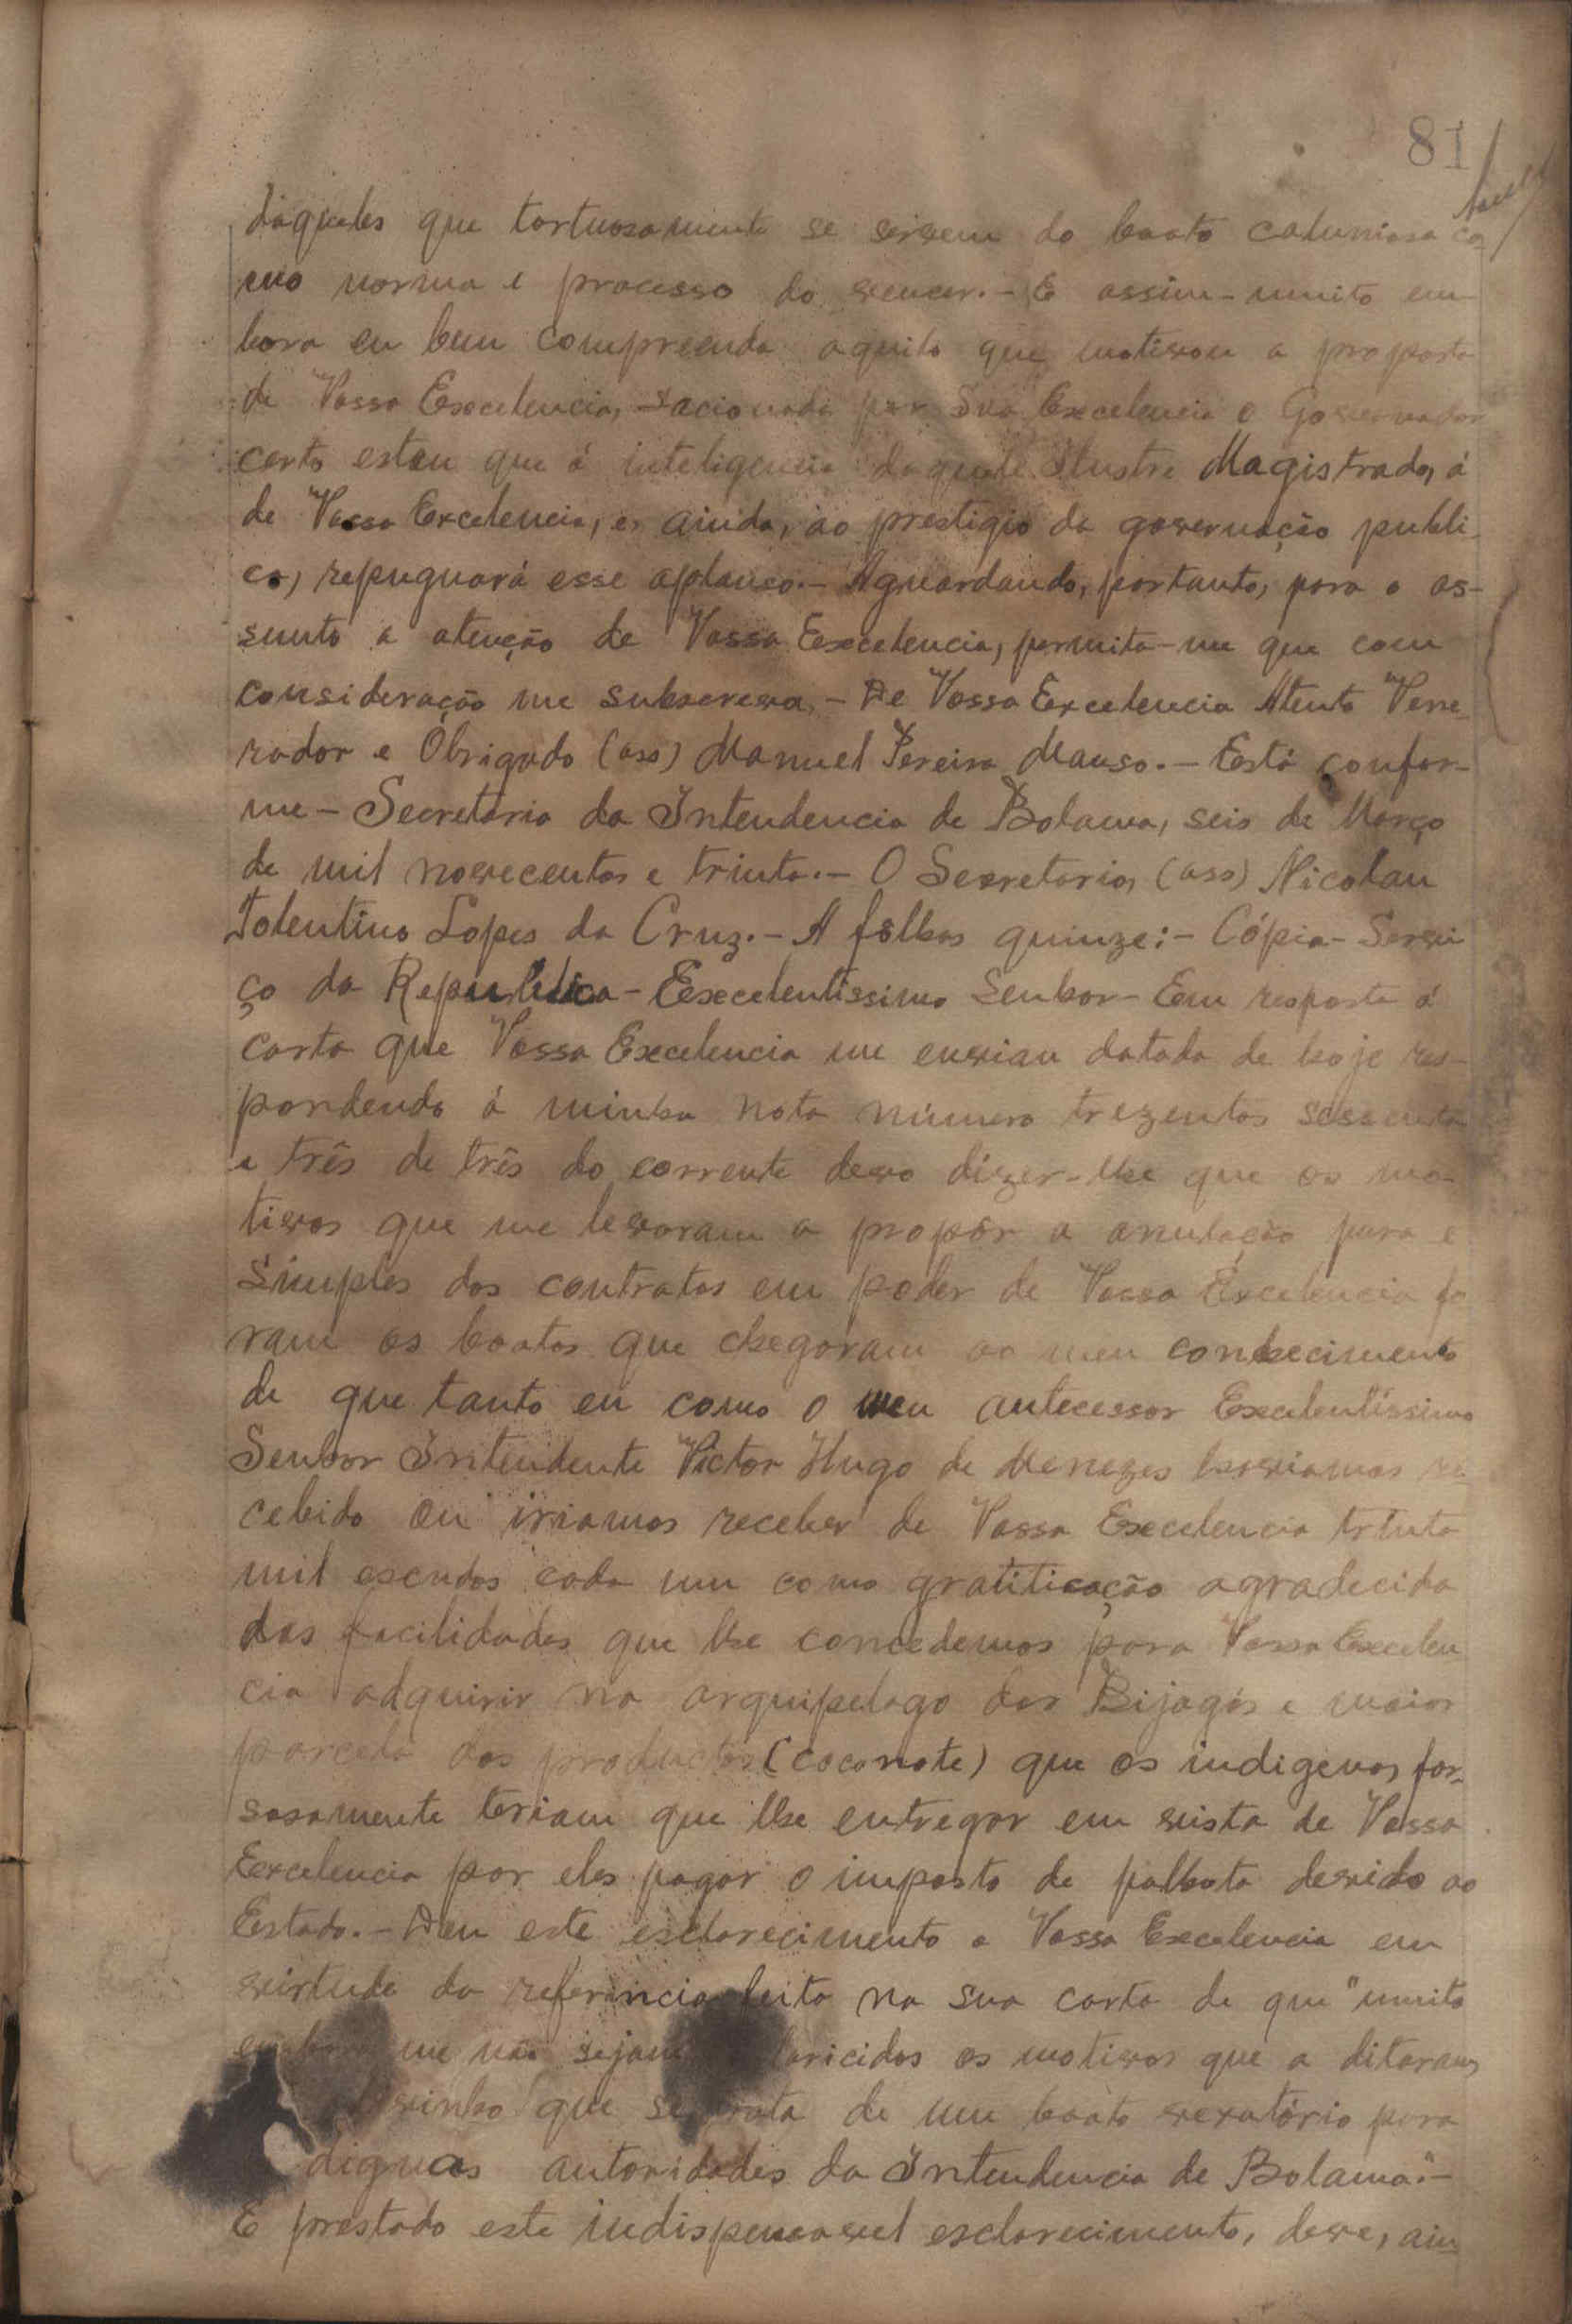 81
dáqueles que tortuosamente se servem do boato calunioso co
mo norma e processo do vencer.- E assim- muito em-
bora eu bem compreenda aquilo que motivou a proposta
de Vossa Excelencia, sacionada por Sua Excelencia o Governador
certo estou que á inteligencia daquele ilustre Magistrado, á
de Vossa Excelencia, e, ainda, ao prestigio da governação publi-
ca, repugnará esse aplauso.- Aguardando, portanto, para o as-
sunto a atenção de Vossa Excelencia, permita-me que com
consideração me subscreva.- De Vossa Excelencia Atento Vene-
rador e Obrigado (ass) Manuel Pereira Manso.- Está confor-
me- Secretaria da Intendencia de Bolama, seis de Março
de mil novecentos e trinta.- O Secretario, (ass) Nicolau
Tolentino Lopes da Cruz.- A fôlhas quinze:- Cópia- Servi
ço da Republica- Excelentissimo Senhor- Em resposta á
carta que Vossa Excelencia me enviou datada de hoje res-
pondendo á minha nota número trezentos sessenta
e três de três do corrente devo dizer-lhe que os mo-
tivos que me levaram a propôr a anulação pura e
simples dos contratos em poder de Vossa Excelencia fo
ram os boatos que chegaram ao meu conhecimento
de que tanto eu como o meu antecessor Excelentíssimo
Senhor Intendente Victor Hugo de Menezes haviamos re-
cebido ou iriamos receber de Vossa Excelencia trinta
mil escudos cada um como gratificação agradecida
das facilidades que lhe concedemos para Vossa Excelen
cia adquirir no arquipelago dos Bijagós a maior
parcela dos productos (coconote) que os indigenas, for-
sosamente teriam que lhe entregar em vista de Vossa
Excelencia por eles pagar o imposto de palhota devido ao
Estado.- Dou este esclarecimento a Vossa Excelencia em
virtude da referência feita na sua carta de que "muito
embora me não sejam laricidos os motivos que a ditaram,
vinho que se trata de um boato vexatório para
dignas autoridades da Intendencia de Bolama".-
E prestado este indispensavel esclarecimento, devo, ain